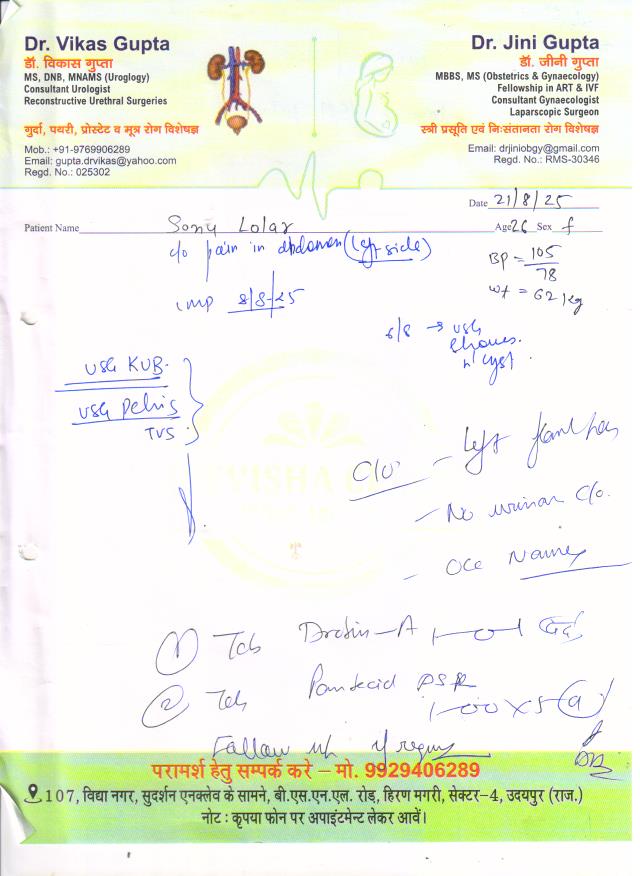 Dr. Vikas Gupta
डॉ. विकास गुप्ता
MS, DNB, MNAMS (Uroglogy)
Consultant Urologist
Reconstructive Urethral Surgeries
गुर्दा, पथरी, प्रोस्टेट व मूत्र रोग विशेषज्ञ
Mob.: +91-9769906289
Email: gupta.drvikas@yahoo.com
Regd. No.: 025302
Dr. Jini Gupta
डॉ. जीनी गुप्ता
MBBS, MS (Obstetrics & Gynaecology)
Fellowship in ART & IVF
Consultant Gynaecologist
Laparscopic Surgeon
स्त्री प्रसूति एवं निःसंतानता रोग विशेषज्ञ
Email: drjiniobgy@gmail.com
Regd. No.: RMS-30346
Date 21/8/25
Patient Name Sonu Lolar Age 26 Sex f
c/o pain in abdomen (left side)
BP = 105/78
wt = 62 kg
LMP 8/8/25
6/8 → USG
shows
cyst
USG KUB
USG Pelvis
TVS
C/o - Left flank pain
- No urinary C/o.
- Occ Nausea
① Tab Drotin-A 1-0-1
② Tab Pantocid DSR
1-0-0 x 5
Follow up
परामर्श हेतु सम्पर्क करे – मो. 9929406289
107, विद्या नगर, सुदर्शन एनक्लेव के सामने, बी.एस.एन.एल. रोड, हिरण मगरी, सेक्टर-4, उदयपुर (राज.)
नोट : कृपया फोन पर अपाइंटमेन्ट लेकर आवें।